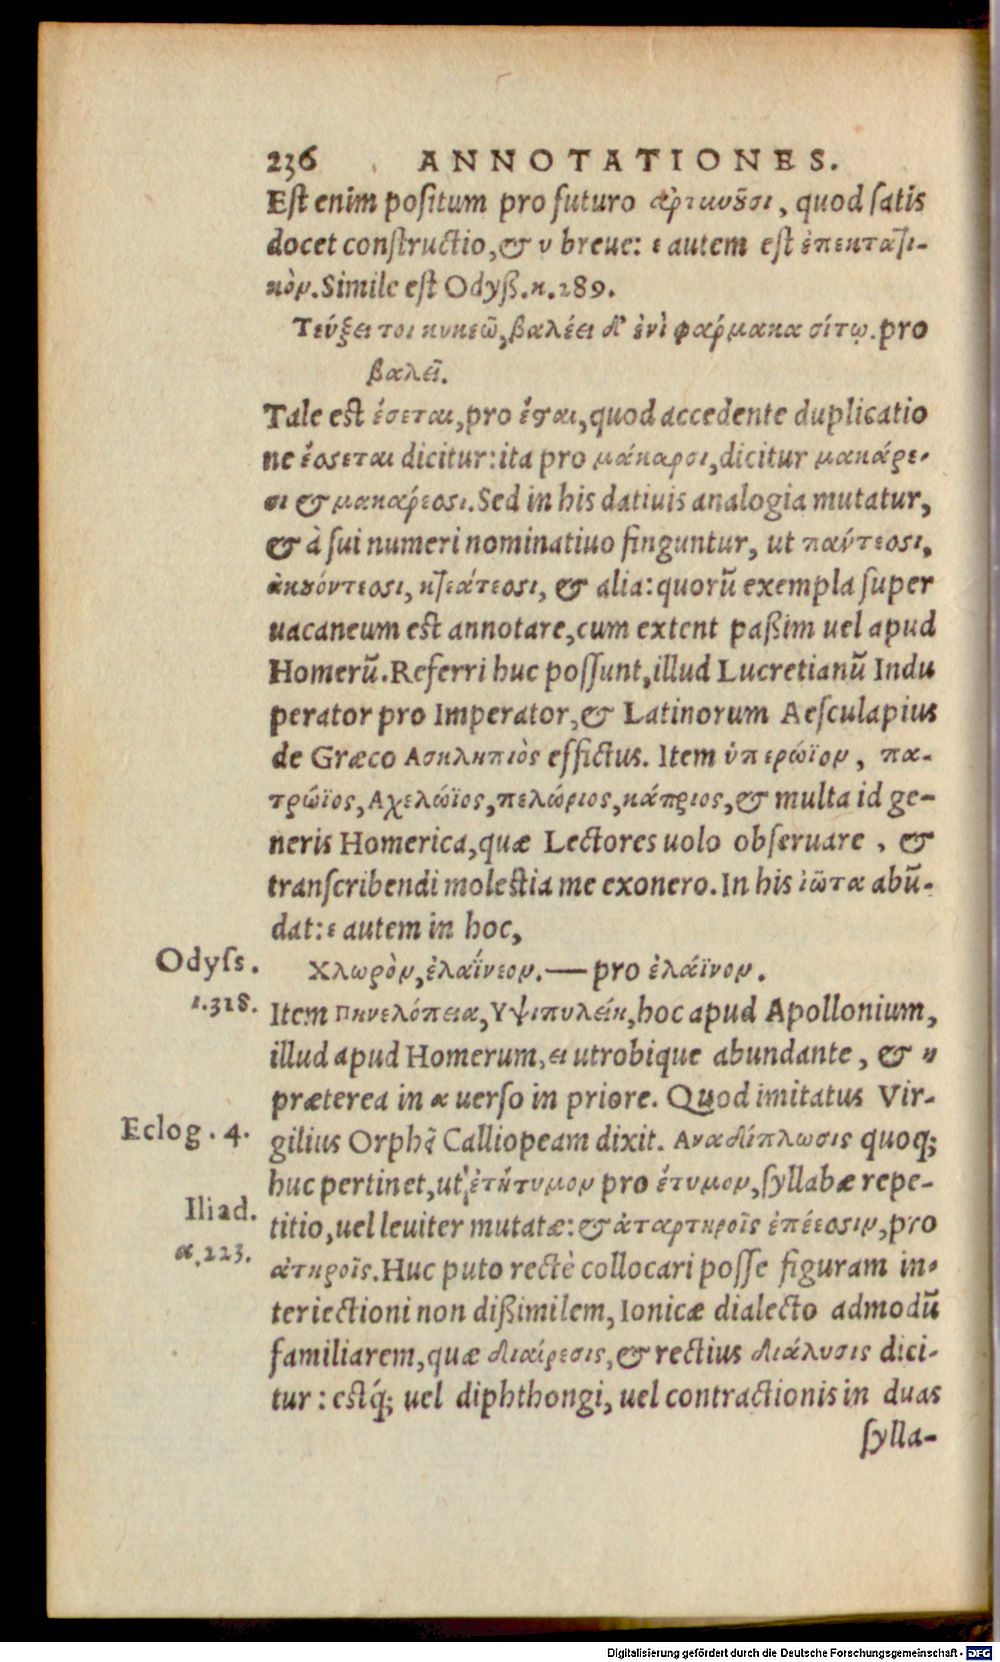 236 ANNOTATIONES.
Est enim positum pro futuro ἀρτυοῦσι, quod satis
docet constructio, & υ breue: ε autem est ἐπεκτατι-
κὸν. Simile est Odyß. κ. 289.
Τεύξει τοι κυκεῶ, βαλέει δ' ἐνὶ φαρμακα σίτῳ. pro
βαλεῖ.
Tale est ἔσεται, pro ἔσται, quod accedente duplicatio
ne ἔσσεται dicitur: ita pro μάκαρσι, dicitur μακάρε-
σι & μακαρεσσι. Sed in his datiuis analogia mutatur,
& à sui numeri nominatiuo finguntur, ut παντεσσι,
ἀκουόντεσσι, κτεάτεσσι, & alia: quorũ exempla super
uacaneum est annotare, cum extent paßim uel apud
Homerũ. Referri huc possunt, illud Lucretianũ Indu
perator pro Imperator, & Latinorum Aesculapius
de Græco Ασκληπιὸς effictus. Item ὑπερώϊον, πα-
τρώϊος, Αχελώϊος, πελώριος, κάπριος, & multa id ge-
neris Homerica, quæ Lectores uolo obseruare, &
transcribendi molestia me exonero. In his ἰῶτα abũ-
dat: ε autem in hoc,
Odyss. Χλωρὸν, ἐλαΐνεον. — pro ἐλάϊνον.
ι. 318. Item Πηνελόπεια, Υψιπυλείη, hoc apud Apollonium,
illud apud Homerum, ει utrobique abundante, & η
præterea in α uerso in priore. Quod imitatus Vir-
Eclog. 4. gilius Orphẽ Calliopeam dixit. Αναδίπλωσις quoq;
huc pertinet, ut ἐτήτυμον pro ἔτυμον, syllabæ repe-
Iliad. titio, uel leuiter mutatæ: & ἀταρτηροῖς ἐπέεσσιν, pro
α. 223. ἀτηροῖς. Huc puto rectè collocari posse figuram in-
teriectioni non dißimilem, Ionicæ dialecto admodũ
familiarem, quæ διαίρεσις, & rectius διάλυσις dici-
tur: estq́; uel diphthongi, uel contractionis in duas
sylla-
Digitalisierung gefördert durch die Deutsche Forschungsgemeinschaft - DFG